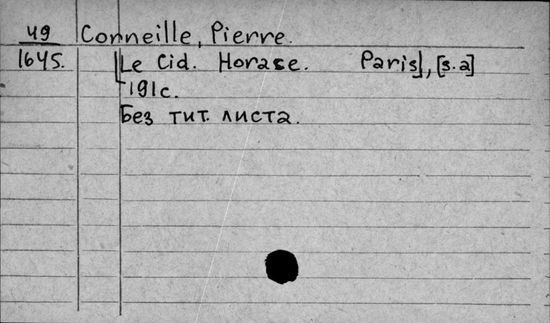 49 Corneille, Pierre.
1645. [Le Cid. Horace. Paris], [s.a]
191с.
Без тит. листа.